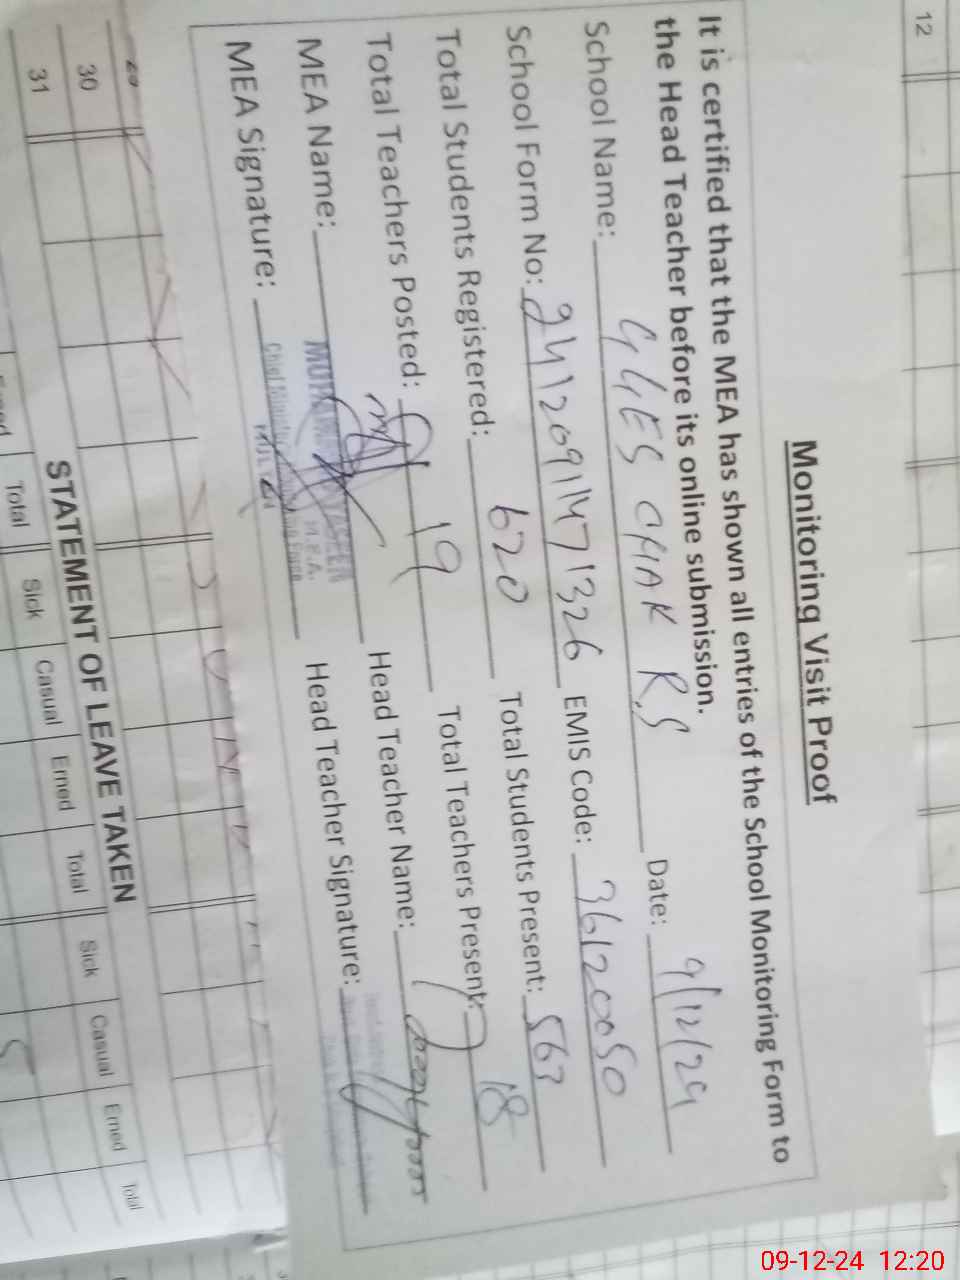 12
Monitoring Visit Proof
It is certified that the MEA has shown all entries of the School Monitoring Form to
the Head Teacher before its online submission.
School Name: GGES CHAK R.S Date: 9/12/24
School Form No: 24120911471326 EMIS Code: 36120050
Total Students Registered: 620 Total Students Present: 563
Total Teachers Posted: 19 Total Teachers Present: 18
MEA Name: Head Teacher Name:
M.E.A.
MEA Signature: Head Teacher Signature:
30
31
STATEMENT OF LEAVE TAKEN
Total Sick Casual Erned Total Sick Casual Erned Total
09-12-24 12:20